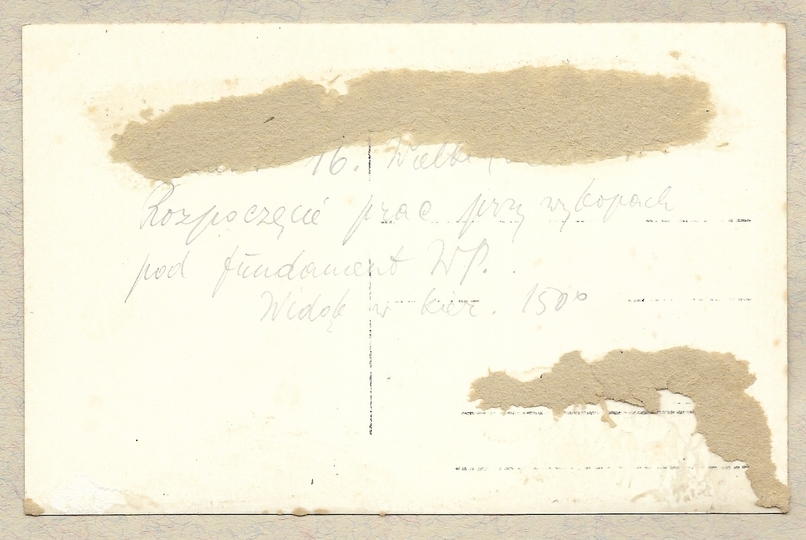 16.
Rozpoczęcie prac przy wykopach
pod fundament WP.
Widok w kier. 150°